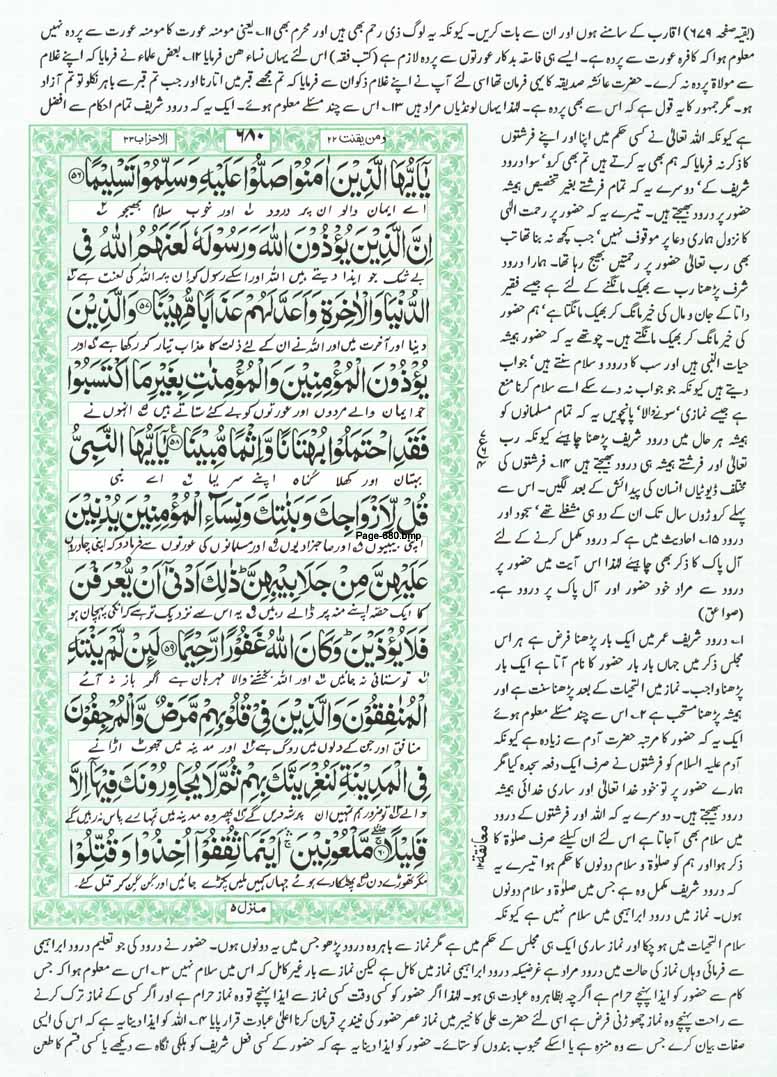 (بقیہ صفحہ ۶۷۹) اقارب کے سامنے ہوں اور ان سے بات کریں۔ کیونکہ یہ لوگ ذی رحم بھی ہیں اور محرم بھی ۱۱۔ یعنی مومنہ عورت کا مومنہ عورت سے پردہ نہیں
معلوم ہوا کہ کافرہ عورت سے پردہ ہے۔ ایسے ہی فاسقہ بدکار عورتوں سے پردہ لازم ہے (کتب فقہ) اس لئے یہاں نساء ھن فرمایا ۱۲۔ بعض علماء نے فرمایا کہ اپنے غلام
سے مولاۃ پردہ نہ کرے۔ حضرت عائشہ صدیقہ کا یہی فرمان تھا اسی لئے آپ نے اپنے غلام ذکوان سے فرمایا کہ تم مجھے قبر میں اتارنا اور جب تم قبر سے باہر نکلو تو تم آزاد
ہو۔ مگر جمہور کا یہ قول ہے کہ اس سے بھی پردہ ہے۔ لہٰذا یہاں لونڈیاں مراد ہیں ۱۳۔ اس سے چند مسئلے معلوم ہوئے۔ ایک یہ کہ درود شریف تمام احکام سے افضل
ہے کیونکہ اللہ تعالیٰ نے کسی حکم میں اپنا اور اپنے فرشتوں
کا ذکر نہ فرمایا کہ ہم بھی یہ کرتے ہیں تم بھی کرو، سوا درود
شریف کے، دوسرے یہ کہ تمام فرشتے بغیر تخصیص ہمیشہ
حضور پر درود بھیجتے ہیں۔ تیسرے یہ کہ حضور پر رحمت الٰہی
کا نزول ہماری دعا پر موقوف نہیں، جب کچھ نہ بنا تھا تب
بھی رب تعالیٰ حضور پر رحمتیں بھیج رہا تھا۔ ہمارا درود
شرف پڑھنا رب سے بھیک مانگنے کے لئے ہے جیسے فقیر
داتا کے جان و مال کی خیر مانگ کر بھیک مانگتا ہے، ہم حضور
کی خیر مانگ کر بھیک مانگتے ہیں۔ چوتھے یہ کہ حضور ہمیشہ
حیات النبی ہیں اور سب کا درود و سلام سنتے ہیں، جواب
دیتے ہیں کیونکہ جو جواب نہ دے سکے اسے سلام کرنا منع
ہے جیسے نمازی، سونے والا، پانچویں یہ کہ تمام مسلمانوں کو
ہمیشہ ہر حال میں درود شریف پڑھنا چاہیئے کیونکہ رب
تعالیٰ اور فرشتے ہمیشہ ہی درود بھیجتے ہیں ۱۴۔ فرشتوں کی
مختلف ڈیوٹیاں انسان کی پیدائش کے بعد لگیں۔ اس سے
پہلے کروڑوں سال تک ان کے دو ہی مشغلے تھے، سجود اور
درود ۱۵۔ احادیث میں ہے کہ درود مکمل کرنے کے لئے
آل پاک کا ذکر بھی چاہیئے لہٰذا اس آیت میں حضور پر
درود سے مراد خود حضور اور آل پاک پر درود ہے۔
(صواعق)
۱۔ درود شریف عمر میں ایک بار پڑھنا فرض ہے ہر اس
مجلس ذکر میں جہاں بار بار حضور کا نام آتا ہے ایک بار
پڑھنا واجب۔ نماز میں التحیات کے بعد پڑھنا سنت ہے اور
ہمیشہ پڑھنا مستحب ہے ۲۔ اس سے چند مسئلے معلوم ہوئے
ایک یہ کہ حضور کا مرتبہ حضرت آدم سے زیادہ ہے کیونکہ
آدم علیہ السلام کو فرشتوں نے صرف ایک دفعہ سجدہ کیا مگر
ہمارے حضور پر تو خود خدا تعالیٰ اور ساری خدائی ہمیشہ
درود بھیجتے ہیں۔ دوسرے یہ کہ اللہ اور فرشتوں کے درود
میں سلام بھی آ جاتا ہے اس لئے ان کیلئے صرف صلوٰۃ کا
ذکر ہوا اور ہم کو صلوٰۃ و سلام دونوں کا حکم ہوا تیسرے یہ
کہ درود شریف مکمل وہ ہے جس میں صلوٰۃ و سلام دونوں
ہوں۔ نماز میں درود ابراہیمی میں سلام نہیں ہے کیونکہ
ومن یقنت ۲۲
۶۸۰
الاحزاب ۳۳
يٰٓاَيُّهَا الَّذِيْنَ اٰمَنُوْا صَلُّوْا عَلَيْهِ وَسَلِّمُوْا تَسْلِيْمًا ۵۶
اے ایمان والو ان پر درود اور خوب سلام بھیجو
اِنَّ الَّذِيْنَ يُؤْذُوْنَ اللّٰهَ وَرَسُوْلَهٗ لَعَنَهُمُ اللّٰهُ فِى
بے شک جو ایذا دیتے ہیں اللہ اور اسکے رسول کو ان پر اللہ کی لعنت ہے
الدُّنْيَا وَالْاٰخِرَةِ وَاَعَدَّ لَهُمْ عَذَابًا مُّهِيْنًا ۵۷ وَالَّذِيْنَ
دنیا اور آخرت میں اور اللہ نے ان کے لئے ذلت کا عذاب تیار کر رکھا ہے اور
يُؤْذُوْنَ الْمُؤْمِنِيْنَ وَالْمُؤْمِنٰتِ بِغَيْرِ مَا اكْتَسَبُوْا
جو ایمان والے مردوں اور عورتوں کو بے کئے ستاتے ہیں انہوں نے
فَقَدِ احْتَمَلُوْا بُهْتَانًا وَّاِثْمًا مُّبِيْنًا ۵۸ يٰٓاَيُّهَا النَّبِىُّ
بہتان اور کھلا گناہ اپنے سر لیا اے نبی
قُلْ لِّاَزْوَاجِكَ وَبَنٰتِكَ وَنِسَآءِ الْمُؤْمِنِيْنَ يُدْنِيْنَ
اپنی بیبیوں اور صاحبزادیوں اور مسلمانوں کی عورتوں سے فرما دو کہ اپنی چادروں
Page-680.bmp
عَلَيْهِنَّ مِنْ جَلَابِيْبِهِنَّ ؕ ذٰلِكَ اَدْنٰٓى اَنْ يُّعْرَفْنَ
کا ایک حصہ اپنے منہ پر ڈالے رہیں یہ اس سے نزدیک تر ہے کہ انکی پہچان ہو
فَلَا يُؤْذَيْنَ ؕ وَكَانَ اللّٰهُ غَفُوْرًا رَّحِيْمًا ۵۹ لَئِنْ لَّمْ يَنْتَهِ
تو ستائی نہ جائیں اور اللہ بخشنے والا مہربان ہے اگر باز نہ آئے
الْمُنٰفِقُوْنَ وَالَّذِيْنَ فِىْ قُلُوْبِهِمْ مَّرَضٌ وَّالْمُرْجِفُوْنَ
منافق اور جن کے دلوں میں روگ ہے اور مدینہ میں جھوٹ اڑانے
فِى الْمَدِيْنَةِ لَنُغْرِيَنَّكَ بِهِمْ ثُمَّ لَا يُجَاوِرُوْنَكَ فِيْهَآ اِلَّا
والے تو ضرور ہم تمہیں ان پر شہ دیں گے پھر وہ مدینہ میں تمہارے پاس نہ رہیں گے
قَلِيْلًا ۚ مَّلْعُوْنِيْنَ ۚ اَيْنَمَا ثُقِفُوْٓا اُخِذُوْا وَقُتِّلُوْا
مگر تھوڑے دن پھٹکارے ہوئے جہاں کہیں ملیں پکڑے جائیں اور گن گن کر قتل کئے
منزل ۵
معانقة ۱۲
سلام التحیات میں ہو چکا اور نماز ساری ایک ہی مجلس کے حکم میں ہے مگر نماز سے باہر وہ درود پڑھو جس میں یہ دونوں ہوں۔ حضور نے درود کی جو تعلیم درود ابراہیمی
سے فرمائی وہاں نماز کی حالت میں درود مراد ہے غرضیکہ درود ابراہیمی نماز میں کامل ہے لیکن نماز سے باہر غیر کامل کہ اس میں سلام نہیں ۳۔ اس سے معلوم ہوا کہ جس
کام سے حضور کو ایذا پہنچے حرام ہے اگرچہ بظاہر وہ عبادت ہی ہو۔ لہٰذا اگر حضور کو کسی وقت کسی نماز سے ایذا پہنچے تو وہ نماز حرام ہے اور اگر کسی کے نماز ترک کرنے
سے راحت پہنچے وہ نماز چھوڑنی فرض ہے اسی لئے حضرت علی کا خیبر میں نماز عصر حضور کی نیند پر قربان کرنا اعلیٰ عبادت قرار پایا ۴۔ اللہ کو ایذا دینا یہ ہے کہ اس کی ایسی
صفات بیان کرے جس سے وہ منزہ ہے یا اسکے محبوب بندوں کو ستائے۔ حضور کو ایذا دینا یہ ہے کہ حضور کے کسی فعل شریف کو ہلکی نگاہ سے دیکھے یا کسی قسم کا طعن